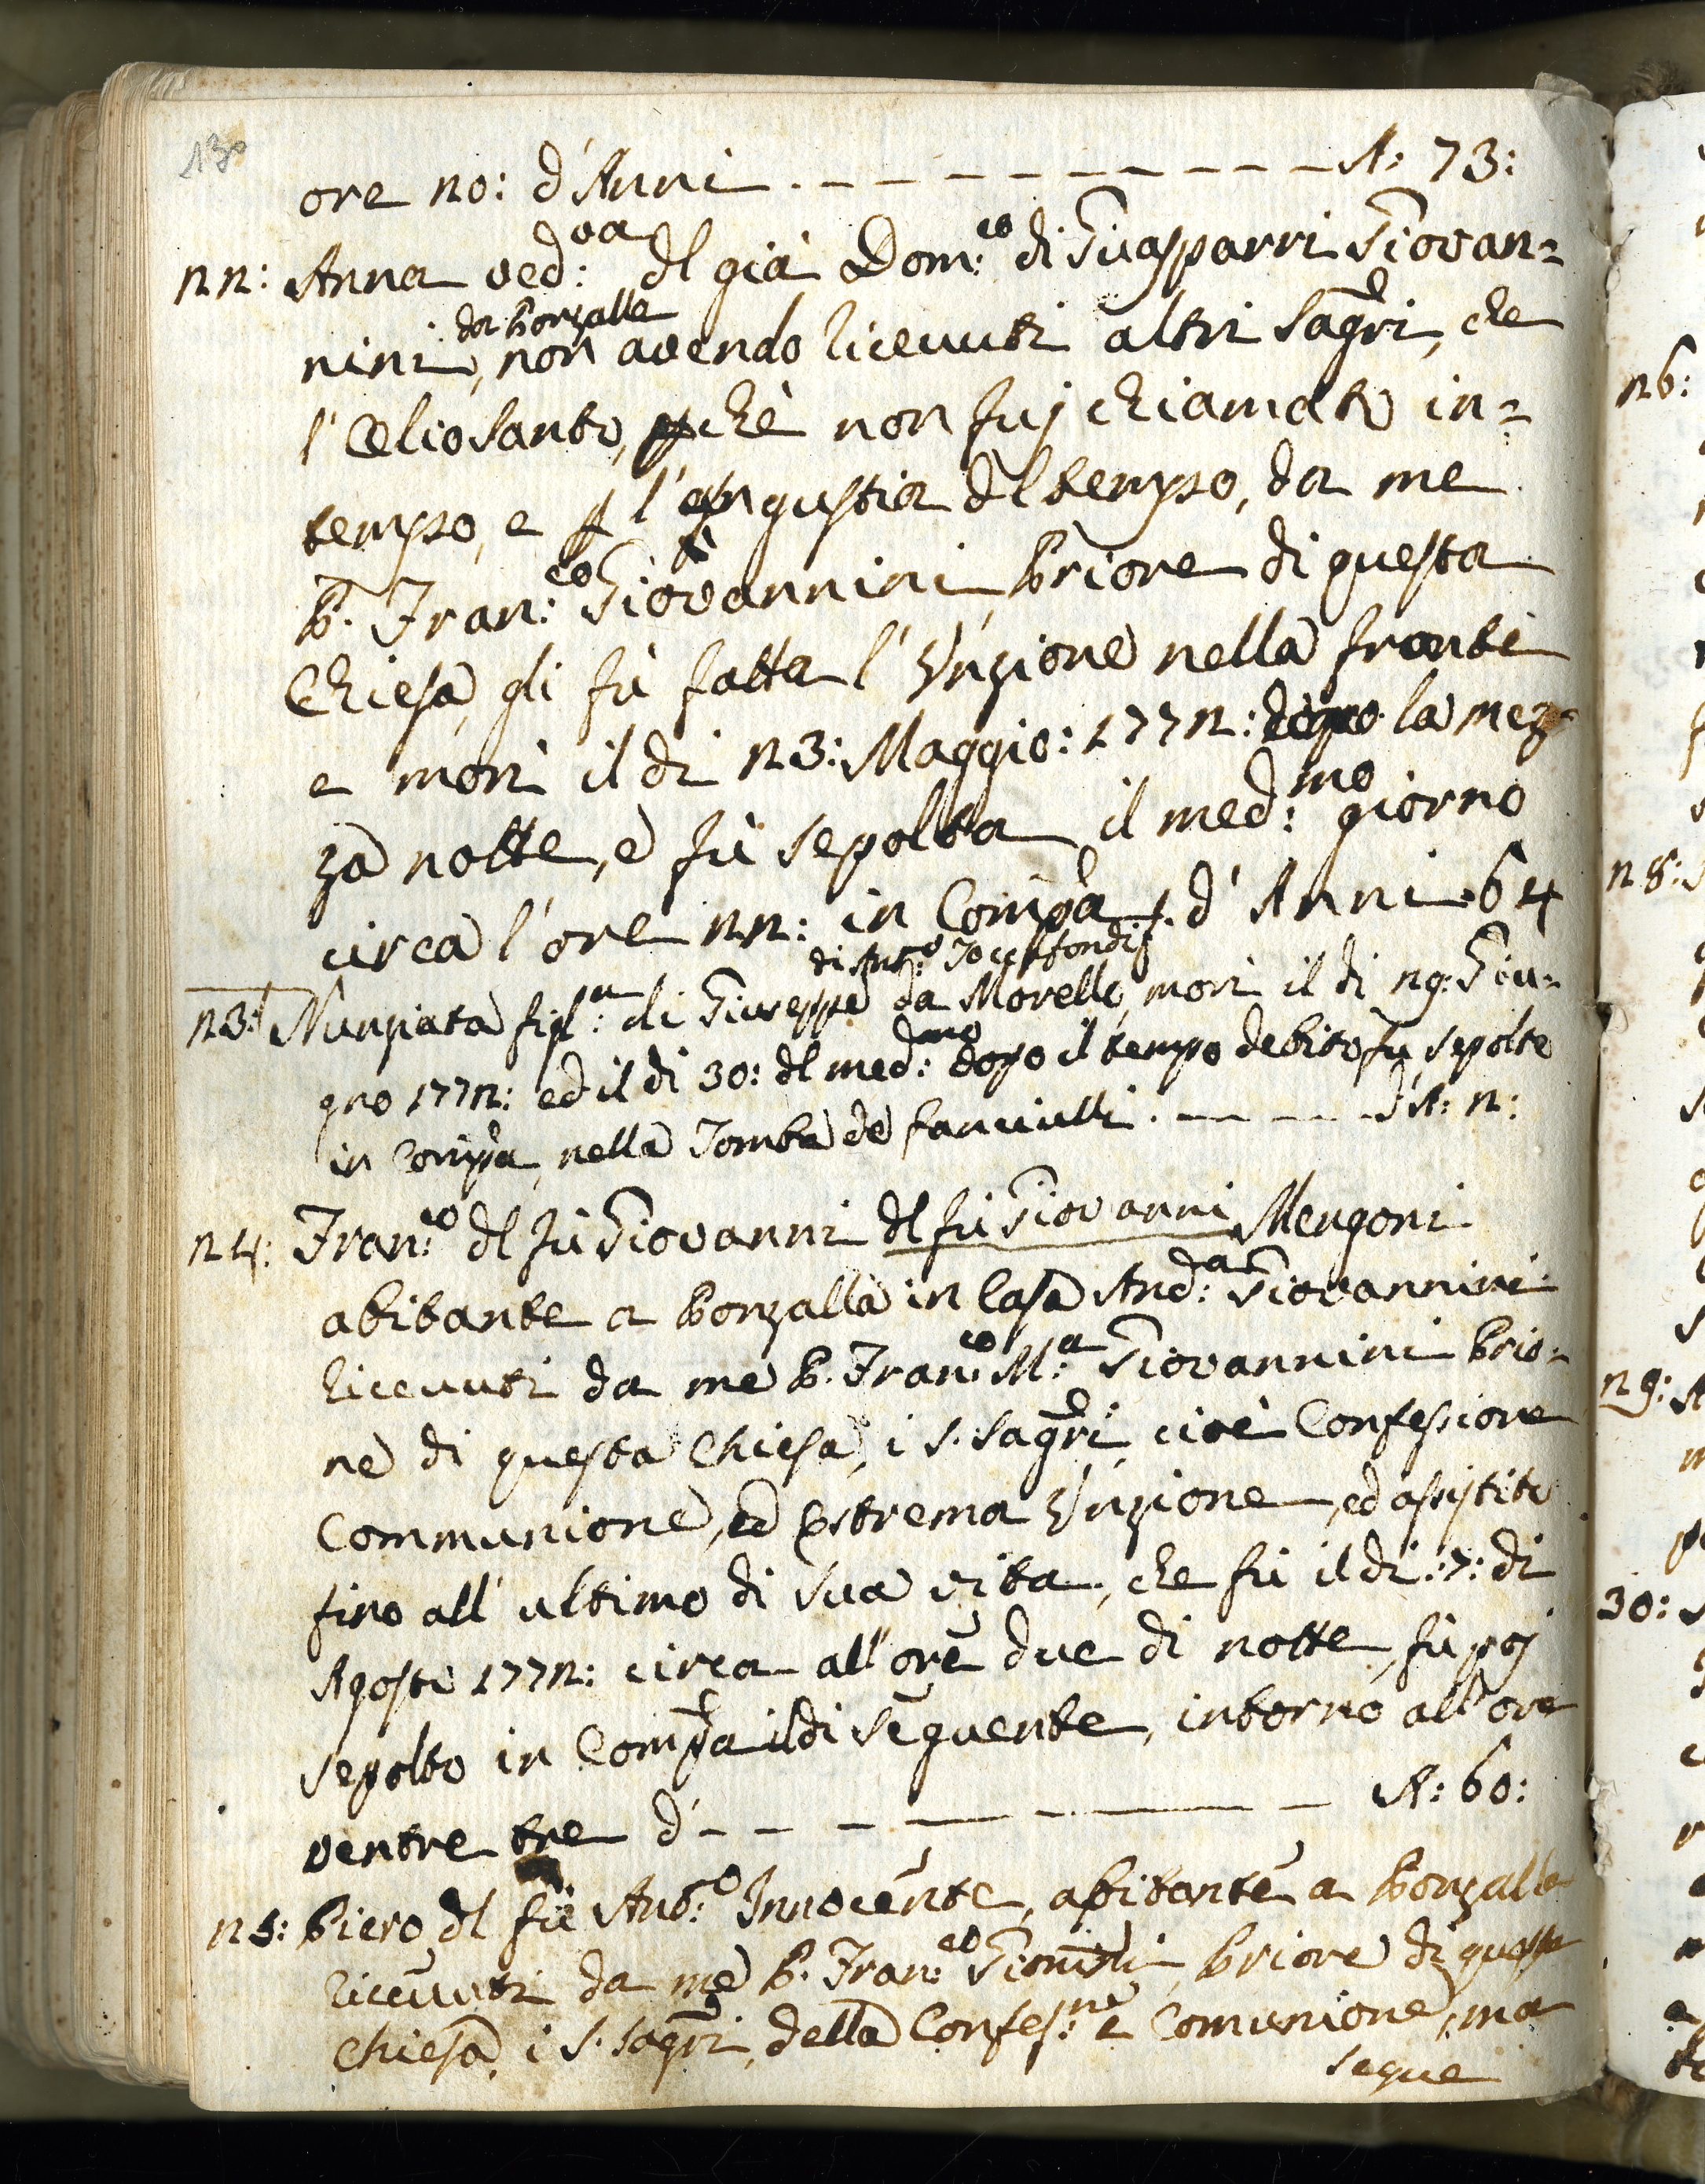 130
ore 20: d'Anni . – – – – – – – – – A: 73:
22: Anna ved:va dl già Dom:co di Guasparri Giovan=
da Ronzalla
nini, non avendo ricevuti altri Sagri, che
l'Olio Santo, pchè non fuj chiamato in=
tempo, e p l'angustia dl tempo, da me
P. Fran:co Giovannini, Priore di questa
Chiesa, gli fù fatta l'Unzione nella fronte
e morì il dì 23: Maggio: 1772: dopo la mez=
za notte, e fù sepolta il med:mo giorno
circa l'ore 22: in Compa d'Anni 64
di Ant:o
23: Nunziata figl:a di Giuseppe da Morello, morì il dì 29: Giu=
gno 1772: ed il dì 30: dl med:mo dopo il tempo debito fu sepolta
in Compa, nella Tomba de fanciulli . – – – – d'A: 2:
24: Fran:co dl fù Giovanni dl fù Giovanni Mengoni
abitante a Ronzalla in Casa And:a Giovannini
ricevuti da me P. Fran:co M:a Giovannini Prio=
re di questa Chiesa, i S. Sagri, cioè Confessione
Communione, ed Estrema Unzione, ed assistito
fino all'ultimo di sua vita, che fù il dì :7: di
Agosto 1772: circa all'ore due di notte, fù poj
sepolto in Compa il dì seguente, intorno all'ore
ventre tre d' – – – – – – – – A: 60:
25: Piero dl fù Ant:o Innocente, abitante a Ronzalla
ricevuti da me P. Fran:co Gionini, Priore di questa
Chiesa, i S. Sagri, della Confes:ne e Comunione, ma
segue
26:
28:
29:
30: